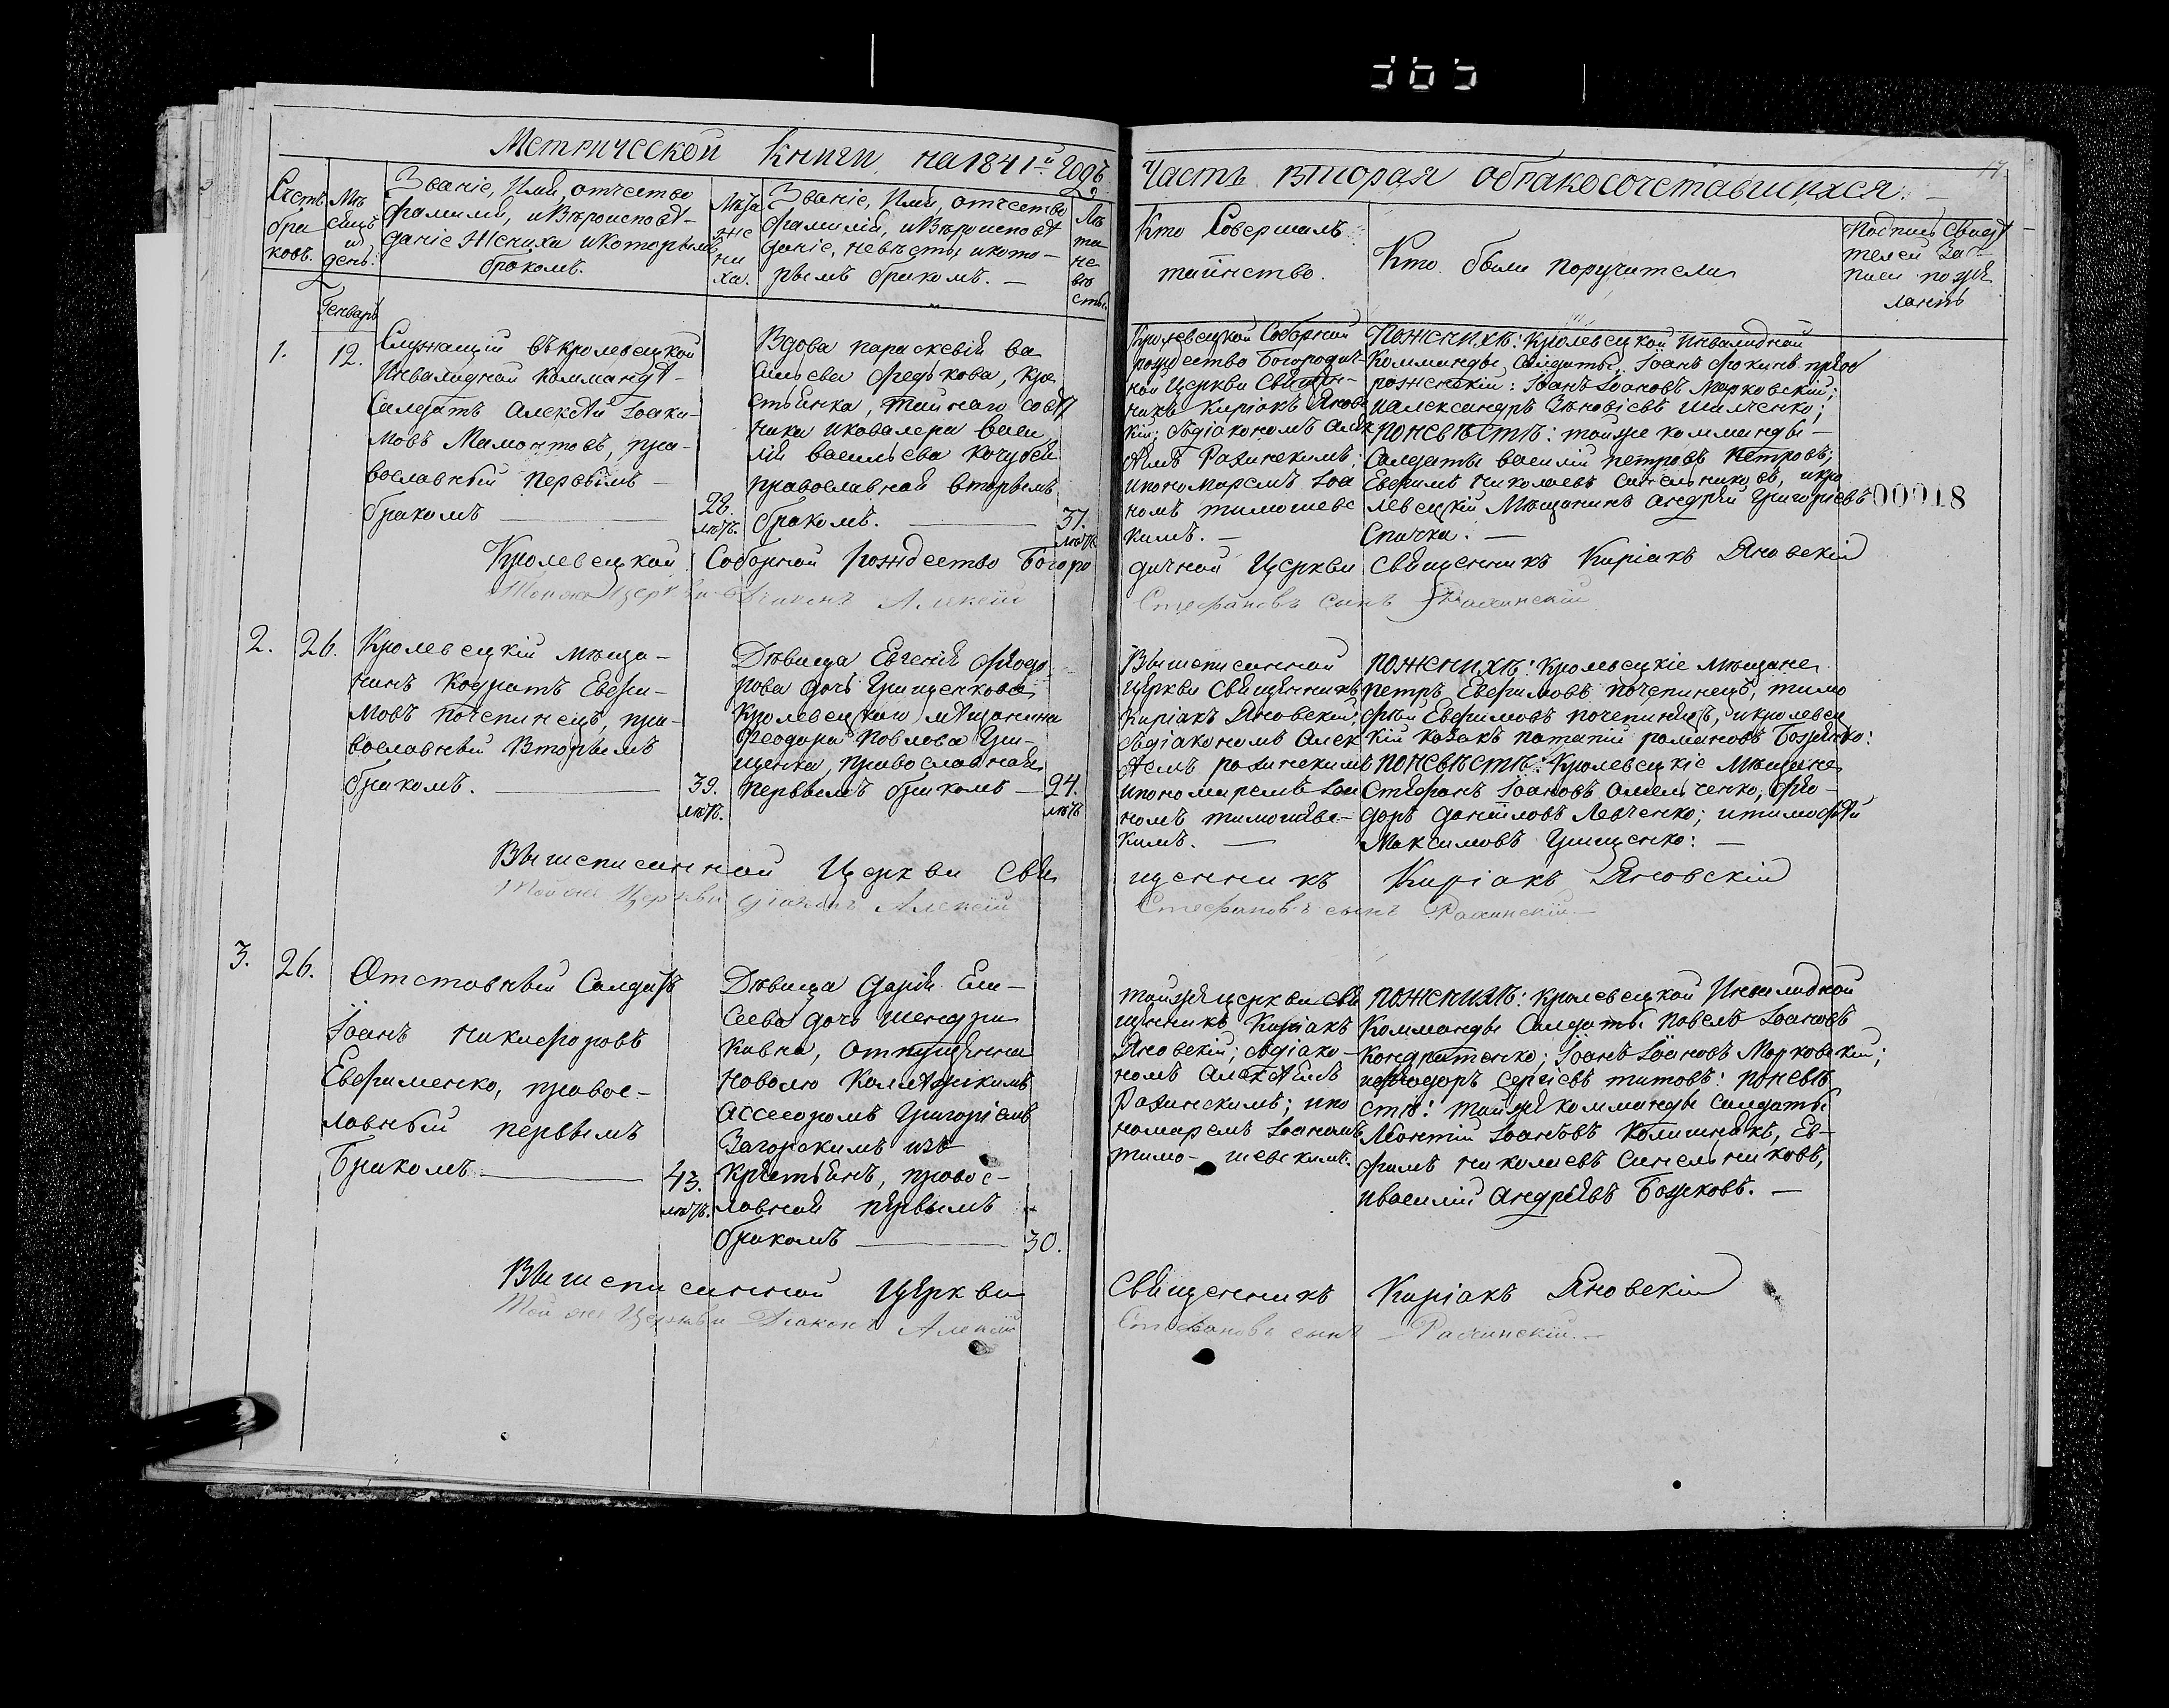 Метрической Книги на 1841й Годъ.
Часть вторая обракосочетавшихся.
17
Счетъ бра ковъ.
Мѣ сяцъ и день.
Званіе, Имя, отчество
фамилія, иВѣроисповѣ-
даніе Жениха икоторымъ
бракомъ.
Лѣта же ни ха.
Званіе, Имя, отчество
фамилія, иВѣроисповѣ
даніе, невѣсты икото-
рымъ бракомъ. —
Лѣ та не вѣ сты.
Кто Совершалъ
таинство.
Кто были поручители
Подпись Свидѣ
телей За-
писи по же
ланію
Генварь
1.
12.
Служащій въкролевецкой
Инвалидной коммандѣ-
Салдатъ Алексѣй Іоаки-
мовъ Мамонтовъ, пра-
вославный первымъ —
бракомъ —
28.
лѣтъ.
Вдова параскевія ва
сильева Федькова, кре
стьянка, тайнаго совѣ
ника икавалера васи
лія васильева Кочубея
православная вторымъ
бракомъ. —
37.
лѣтъ
Кролевецкой Соборной
рождество Богородич-
ной Церкви Священ-
никъ Киріакъ Яновс
кій; сдіакономъ Алек
сѣемъ Рачинскимъ;
ипономаремъ Іоа
номъ тимошевс
кимъ. —
Поженихѣ: Кролевецкой Инвалидной
Комманды, Салдаты, Іоанъ Фокинъ
Іоанъ Іоановъ Марковскій;
иАлександръ Зѣновіевъ Шимченко;
Поневѣстѣ: тойже комманды —
Салдаты василій петровъ Петровъ;
Евфимъ Николаевъ Синельниковъ, икро
левецкій Мѣщанинъ Андрей Григорьевъ
Спичка. —
00018
Кролевецкой Соборной Рождество Богоро
дичной Церкви Священникъ Киріакъ Яновскій
Тойже Церкви Діаконъ Алексій
Стефановъ сынъ Рачинскій
2.
26.
Кролевецкій мѣща-
нинъ Кодратъ Евфи-
мовъ почепинецъ, пра-
вославный Вторымъ
бракомъ. —
39.
лѣтъ.
Дѣвица Евгенія Фіодо
рова дочь Грищенкова,
Кролевецкого мѣщанина
Феодора Павлова Гри-
щенка, православная
первымъ бракомъ —
24.
лѣтъ
Вышеписанной
Церкви Священникъ
Киріакъ Яновскій;
сдіакономъ Алек
сѣемъ рачинскимъ
ипономаремъ Іоа
номъ тимошевс-
кимъ. —
поженихѣ: Кролевецкіе мѣщане
петръ Евфимовъ почепинецъ, тимо
фѣй Евфимовъ почепинецъ, икролевец
кій козакъ потапій романовъ Божинко:
поневѣстѣ: Кролевецкіе Мѣщане
Стефанъ Іоановъ Омельченко, Фіо-
доръ Даніиловъ Левченко; итимофѣй
Максимовъ Грищенко: —
Вышеписанной Церкви Свя
щенникъ Киріакъ Яновскій
Той же Церкви діаконъ Алексій
Стефановъ сынъ Рачинскій —
3.
26.
Отставный Салдатъ
Іоанъ Никифоровъ
Евфименко, правос-
лавный первымъ
Бракомъ —
43.
лѣтъ.
Дѣвица Дарія Ели-
сеева дочь Шендри
ковна, отпущенна
Новолю Колежскимъ
Ассесоромъ Григоріемъ
Загорскимъ изъ
Крестьянъ, правос-
лавная первымъ
бракомъ —
30.
тойже церкви свя
щенникъ Киріакъ
Яновскій; сдіако-
номъ Алексѣемъ
Рачинскимъ; ипо
номаремъ Іоаномъ
тимо- шевскимъ.
поженихѣ: Кролевецкой Инвалидной
Комманды Салдаты повелъ Іоановъ
Кондратенко; Іоанъ Іоановъ Марковскій;
иФіодоръ Сергіевъ титовъ: поневѣ
стѣ: тойже комманды салдаты
Леонтій Іоановъ Колишнакъ, Ев-
фимъ николаевъ Синельниковъ,
ивасилій Андрѣевъ Божковъ. —
Вышеписанной Церкви
Священникъ Киріакъ Яновскій
Той же Церкви Діаконъ Алексій
Стефановъ сынъ Рачинскій. —